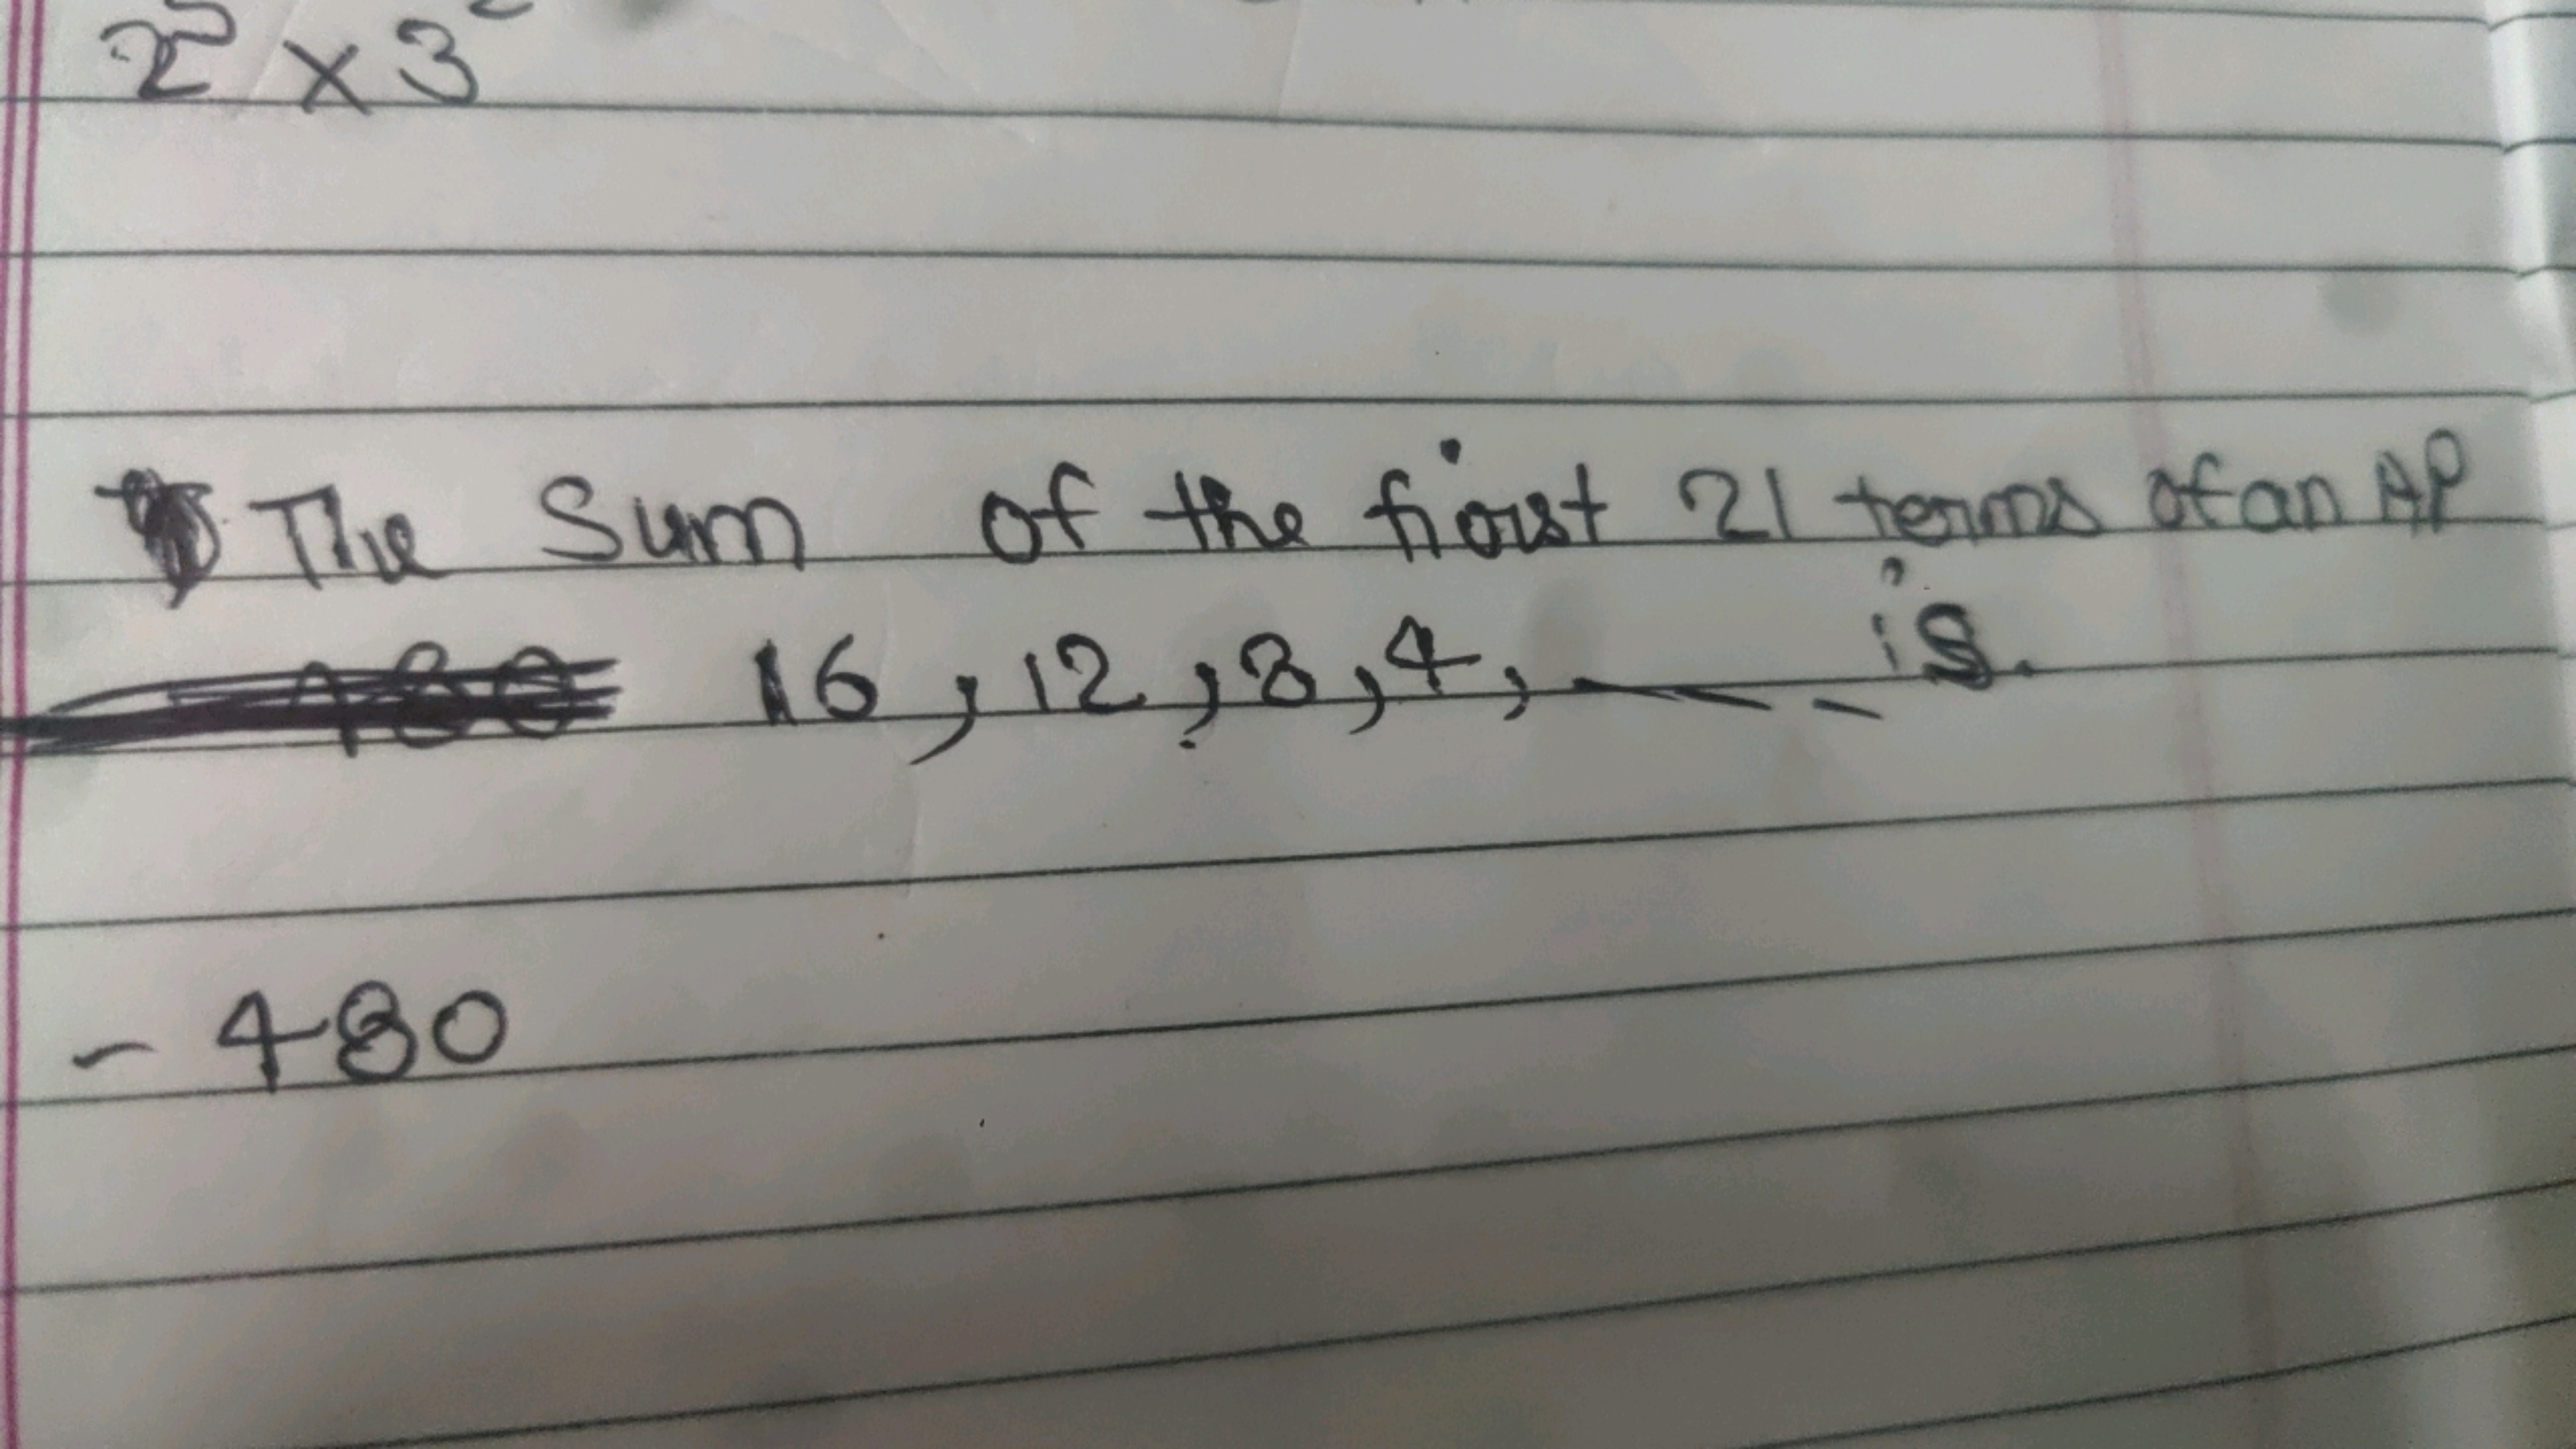 2⁵ × 3²
The Sum of the first 21 terms of an AP
16, 12, 8, 4, — - - is.
- 480